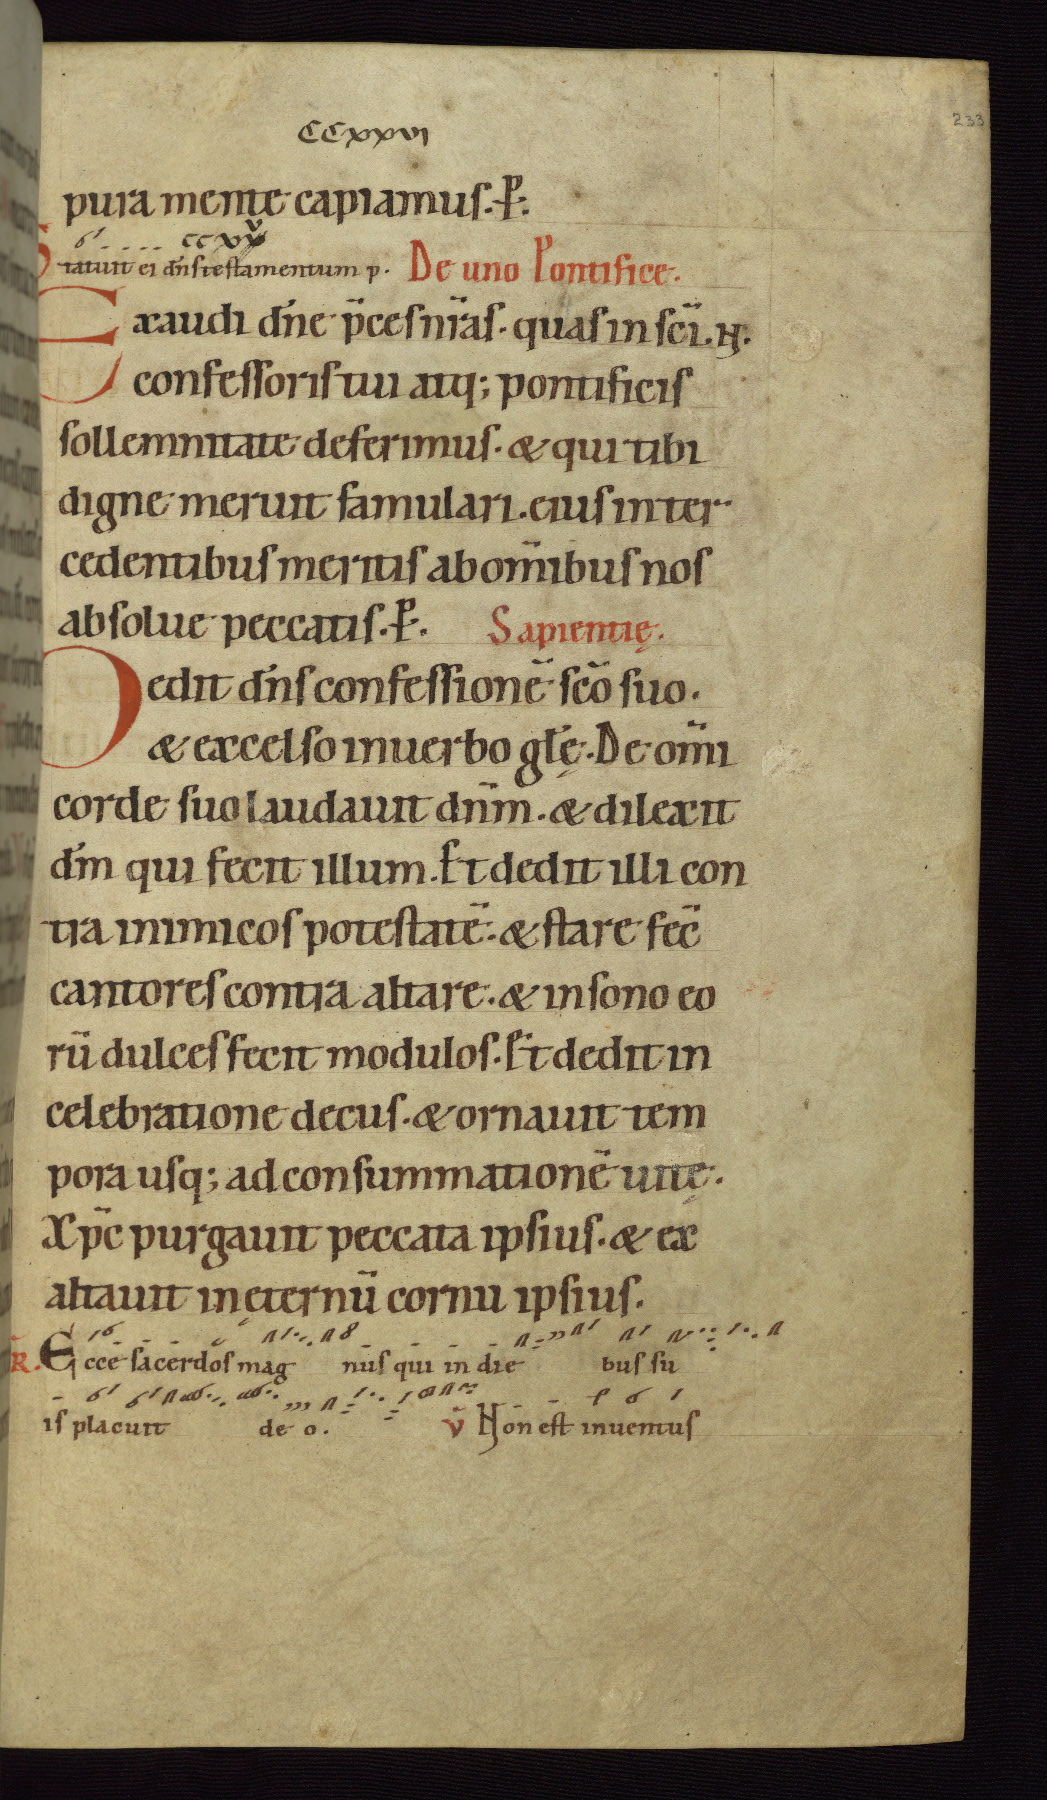 233
CCXXVI
pura mente capiamus. P.
CCXV
Statuit ei dñs testamentum p. De uno Pontifice.
Exaudi dñe p̄ces nr̄as. quas in sc̄i. N.
confessoris tui atq; pontificis
sollemnitate deferimus. & qui tibi
digne meruit famulari. eius inter
cedentibus meritis ab om̄ibus nos
absolue peccatis. P. Sapientię.
Dedit dñs confessionē sc̄o suo.
& excelso in uerbo gl̄ę. De om̄i
corde suo laudauit dnm̄. & dilexit
dm̄ qui fecit illum. Et dedit illi con
tra inimicos potestatē. & stare fec̄
cantores contra altare. & in sono eo
rū dulces fecit modulos. Et dedit in
celebratione decus. & ornauit tem
pora usq; ad consummationē uitę.
Xp̄c purgauit peccata ipsius. & ex
altauit in ęternū cornu ipsius.
R. Ecce sacerdos mag nus qui in die bus su
is placuit de o. V̄ Non est inuentus